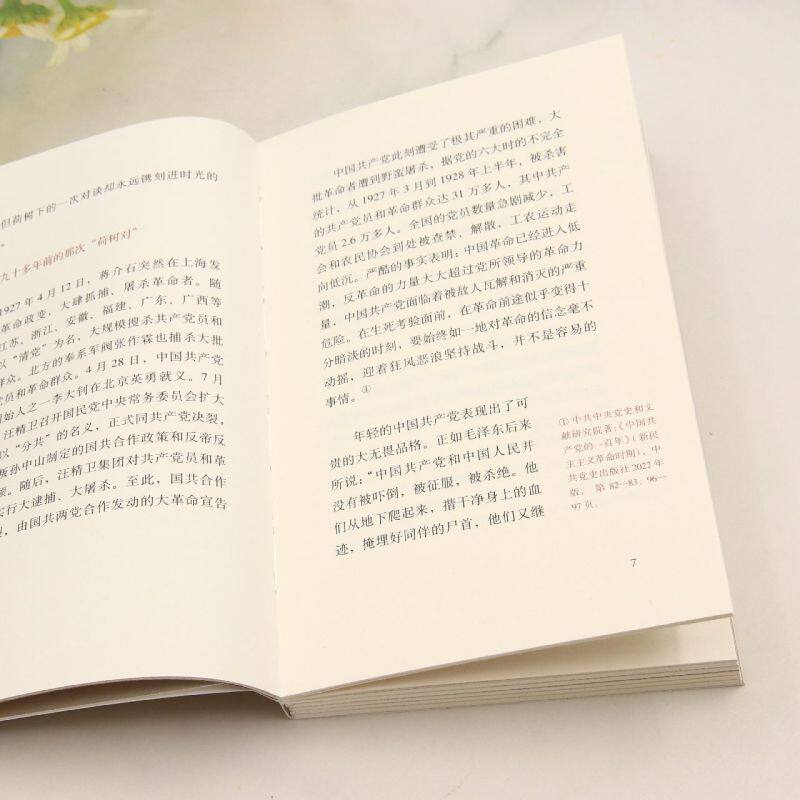 但荷树下的一次对谈却永远镌刻进时光的
。
九十多年前的那次“荷树对”
1927年4月12日，蒋介石突然在上海发
革命政变，大肆抓捕、屠杀革命者。随
江苏、浙江、安徽、福建、广东、广西等
以“清党”为名，大规模搜杀共产党员和
群众。北方的奉系军阀张作霖也捕杀大批
党员和革命群众。4月28日，中国共产党
始人之一李大钊在北京英勇就义。7月
汪精卫召开国民党中央常务委员会扩大
以“分共”的名义，正式同共产党决裂，
叛孙中山制定的国共合作政策和反帝反
领。随后，汪精卫集团对共产党员和革
实行大逮捕、大屠杀。至此，国共合作
，由国共两党合作发动的大革命宣告
中国共产党此刻遭受了极其严重的困难，大
批革命者遭到野蛮屠杀，据党的六大时的不完全
统计，从1927年3月到1928年上半年，被杀害
的共产党员和革命群众达31万多人，其中共产
党员2.6万多人。全国的党员数量急剧减少，工
会和农民协会到处被查禁、解散，工农运动走
向低沉。严酷的事实表明：中国革命已经进入低
潮，反革命的力量大大超过党所领导的革命力
量，中国共产党面临着被敌人瓦解和消灭的严重
危险。在生死考验面前，在革命前途似乎变得十
分暗淡的时刻，要始终如一地对革命的信念毫不
动摇，迎着狂风恶浪坚持战斗，并不是容易的
事情。①
年轻的中国共产党表现出了可
贵的大无畏品格。正如毛泽东后来
所说：“中国共产党和中国人民并
没有被吓倒，被征服，被杀绝。他
们从地下爬起来，揩干净身上的血
迹，掩埋好同伴的尸首，他们又继
① 中共中央党史和文
献研究院著：《中国共
产党的一百年》（新民
主主义革命时期），中
共党史出版社2022年
版，第82—83、96—
97页。
7